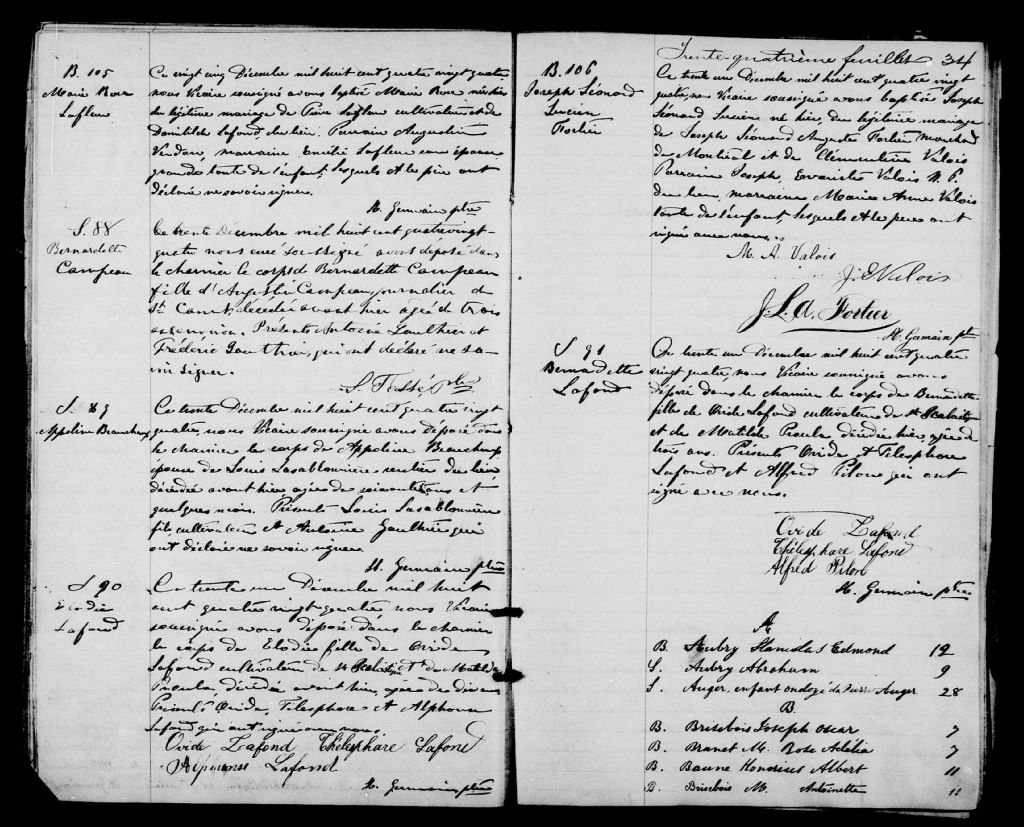 B. 105
Marie Rose
Lafleur
Ce vingt cinq Décembre mil huit cent quatre vingt quatre
nous Vicaire soussigné avons baptisé Marie Rose née hier
du légitime mariage de Pierre Lafleur cultivateur et de
Domitilde Lafond, du lieu. Parrain Augustin
Verdon, marraine Emilie Lafleur son épouse
grande tante de l'enfant, lesquels et le père ont
déclaré ne savoir signer.
H. Germain ptre
S. 88
Bernardette
Campeau
Ce trente Décembre mil huit cent quatrevingt-
quatre nous curé soussigné avons déposé dans
le charnier le corps de Bernardette Campeau
fille d'Augustin Campeau, journalier de
St. décédée avant hier agée de trois
ans environ. Présents Antoine Gaulthier et
Frédéric Gauthier, qui ont déclaré ne sa-
voir signer.
ptre
S. 89
Appoline Beauchamp
Ce trente Décembre mil huit cent quatre vingt
quatre, nous Vicaire soussigné avons déposé dans
le charnier le corps de Appoline Beauchamp
épouse de Louis Lasablonnière rentier du lieu
décédée avant hier agée de soixante et
quelques mois. Présents Louis Lasablonnière
fils, cultivateur et Antoine Gaulthier qui
ont déclaré ne savoir signer.
H. Germain ptre
S 90
Elodie
Lafond
Ce trente un Décembre mil huit
cent quatre vingt quatre nous Vicaire
soussigné avons déposé dans le charnier
le corps de Elodie fille de Ovide
Lafond cultivateur de St Scholastique et de Matilde
Proulx, décédée avant hier, agée de
Présents Ovide, Télesphore et Alphonse
Lafond qui ont signé avec nous.
Ovide Lafond Thélesphore Lafond
Alphonse Lafond
H. Germain ptre
Trente-quatrième feuillet 34
B. 106
Joseph Léonard
Lucien
Fortier
Ce trente un Décembre mil huit cent quatre vingt
quatre, nous Vicaire soussigné avons baptisé Joseph
Léonard Lucien né hier, du légitime mariage
de Joseph Léonard Auguste Fortier marchand
de Montréal et de Clémentine Valois
Parrain Joseph, Evariste Valois N. P.
du lieu, marraine Marie Anne Valois
tante de l'enfant, lesquels et le pere ont
signé avec nous.
M. A. Valois
J. E Valois
J. L. A. Fortier
H. Germain ptre
S 91
Bernadette
Lafond
Ce trente un Décembre mil huit cent quatre
vingt quatre, nous Vicaire soussigné avons
déposé dans le charnier le corps de Bernadette
fille de Ovide Lafond cultivateur de St Scholastique
et de Matilde Proulx décédée hier, agée de
trois ans. Présents Ovide et Télesphore
Lafond et Alfred Pilon qui ont
signé avec nous.
Ovide Lafond
Thélesphore Lafond
Alfred Pilon
H. Germain ptre
A
B. Aubry Stanislas Edmond 12
S. Aubry Abraham 9
S. Auger, enfant ondoyé de Pierre Auger 28
B.
B. Brisebois Joseph Oscar 7
B. Brunet M. Rose Adélia 7
B. Baune Honorius Albert 11
B. Brisebois M. Antoinette 11